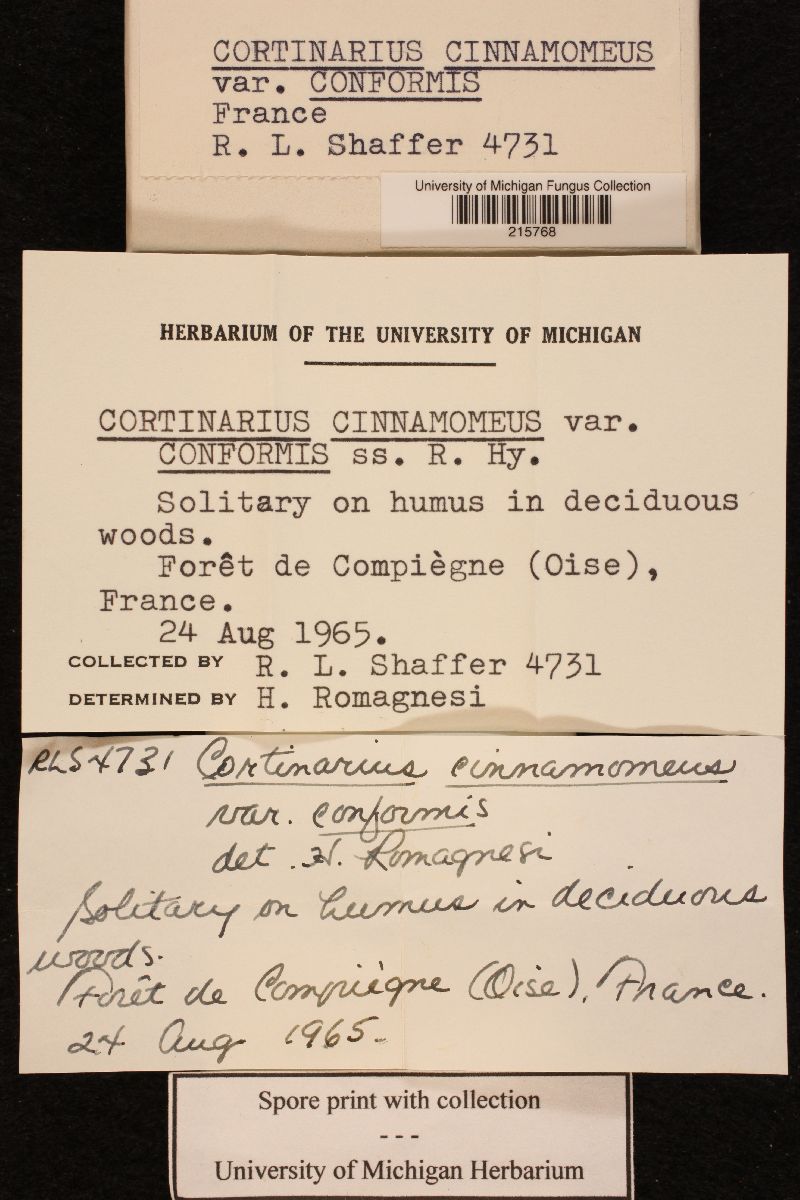 CORTINARIUS CINNAMOMEUS
var. CONFORMIS
France
R. L. Shaffer 4731
University of Michigan Fungus Collection
215768
HERBARIUM OF THE UNIVERSITY OF MICHIGAN
CORTINARIUS CINNAMOMEUS var.
CONFORMIS ss. R. Hy.
Solitary on humus in deciduous
woods.
Forêt de Compiègne (Oise),
France.
24 Aug 1965.
COLLECTED BY R. L. Shaffer 4731
DETERMINED BY H. Romagnesi
RLS 4731 Cortinarius cinnamomeus
var. conformis
det. H. Romagnesi
Solitary on humus in deciduous
woods.
Forêt de Compiègne (Oise), France.
24 Aug 1965.
Spore print with collection
---
University of Michigan Herbarium